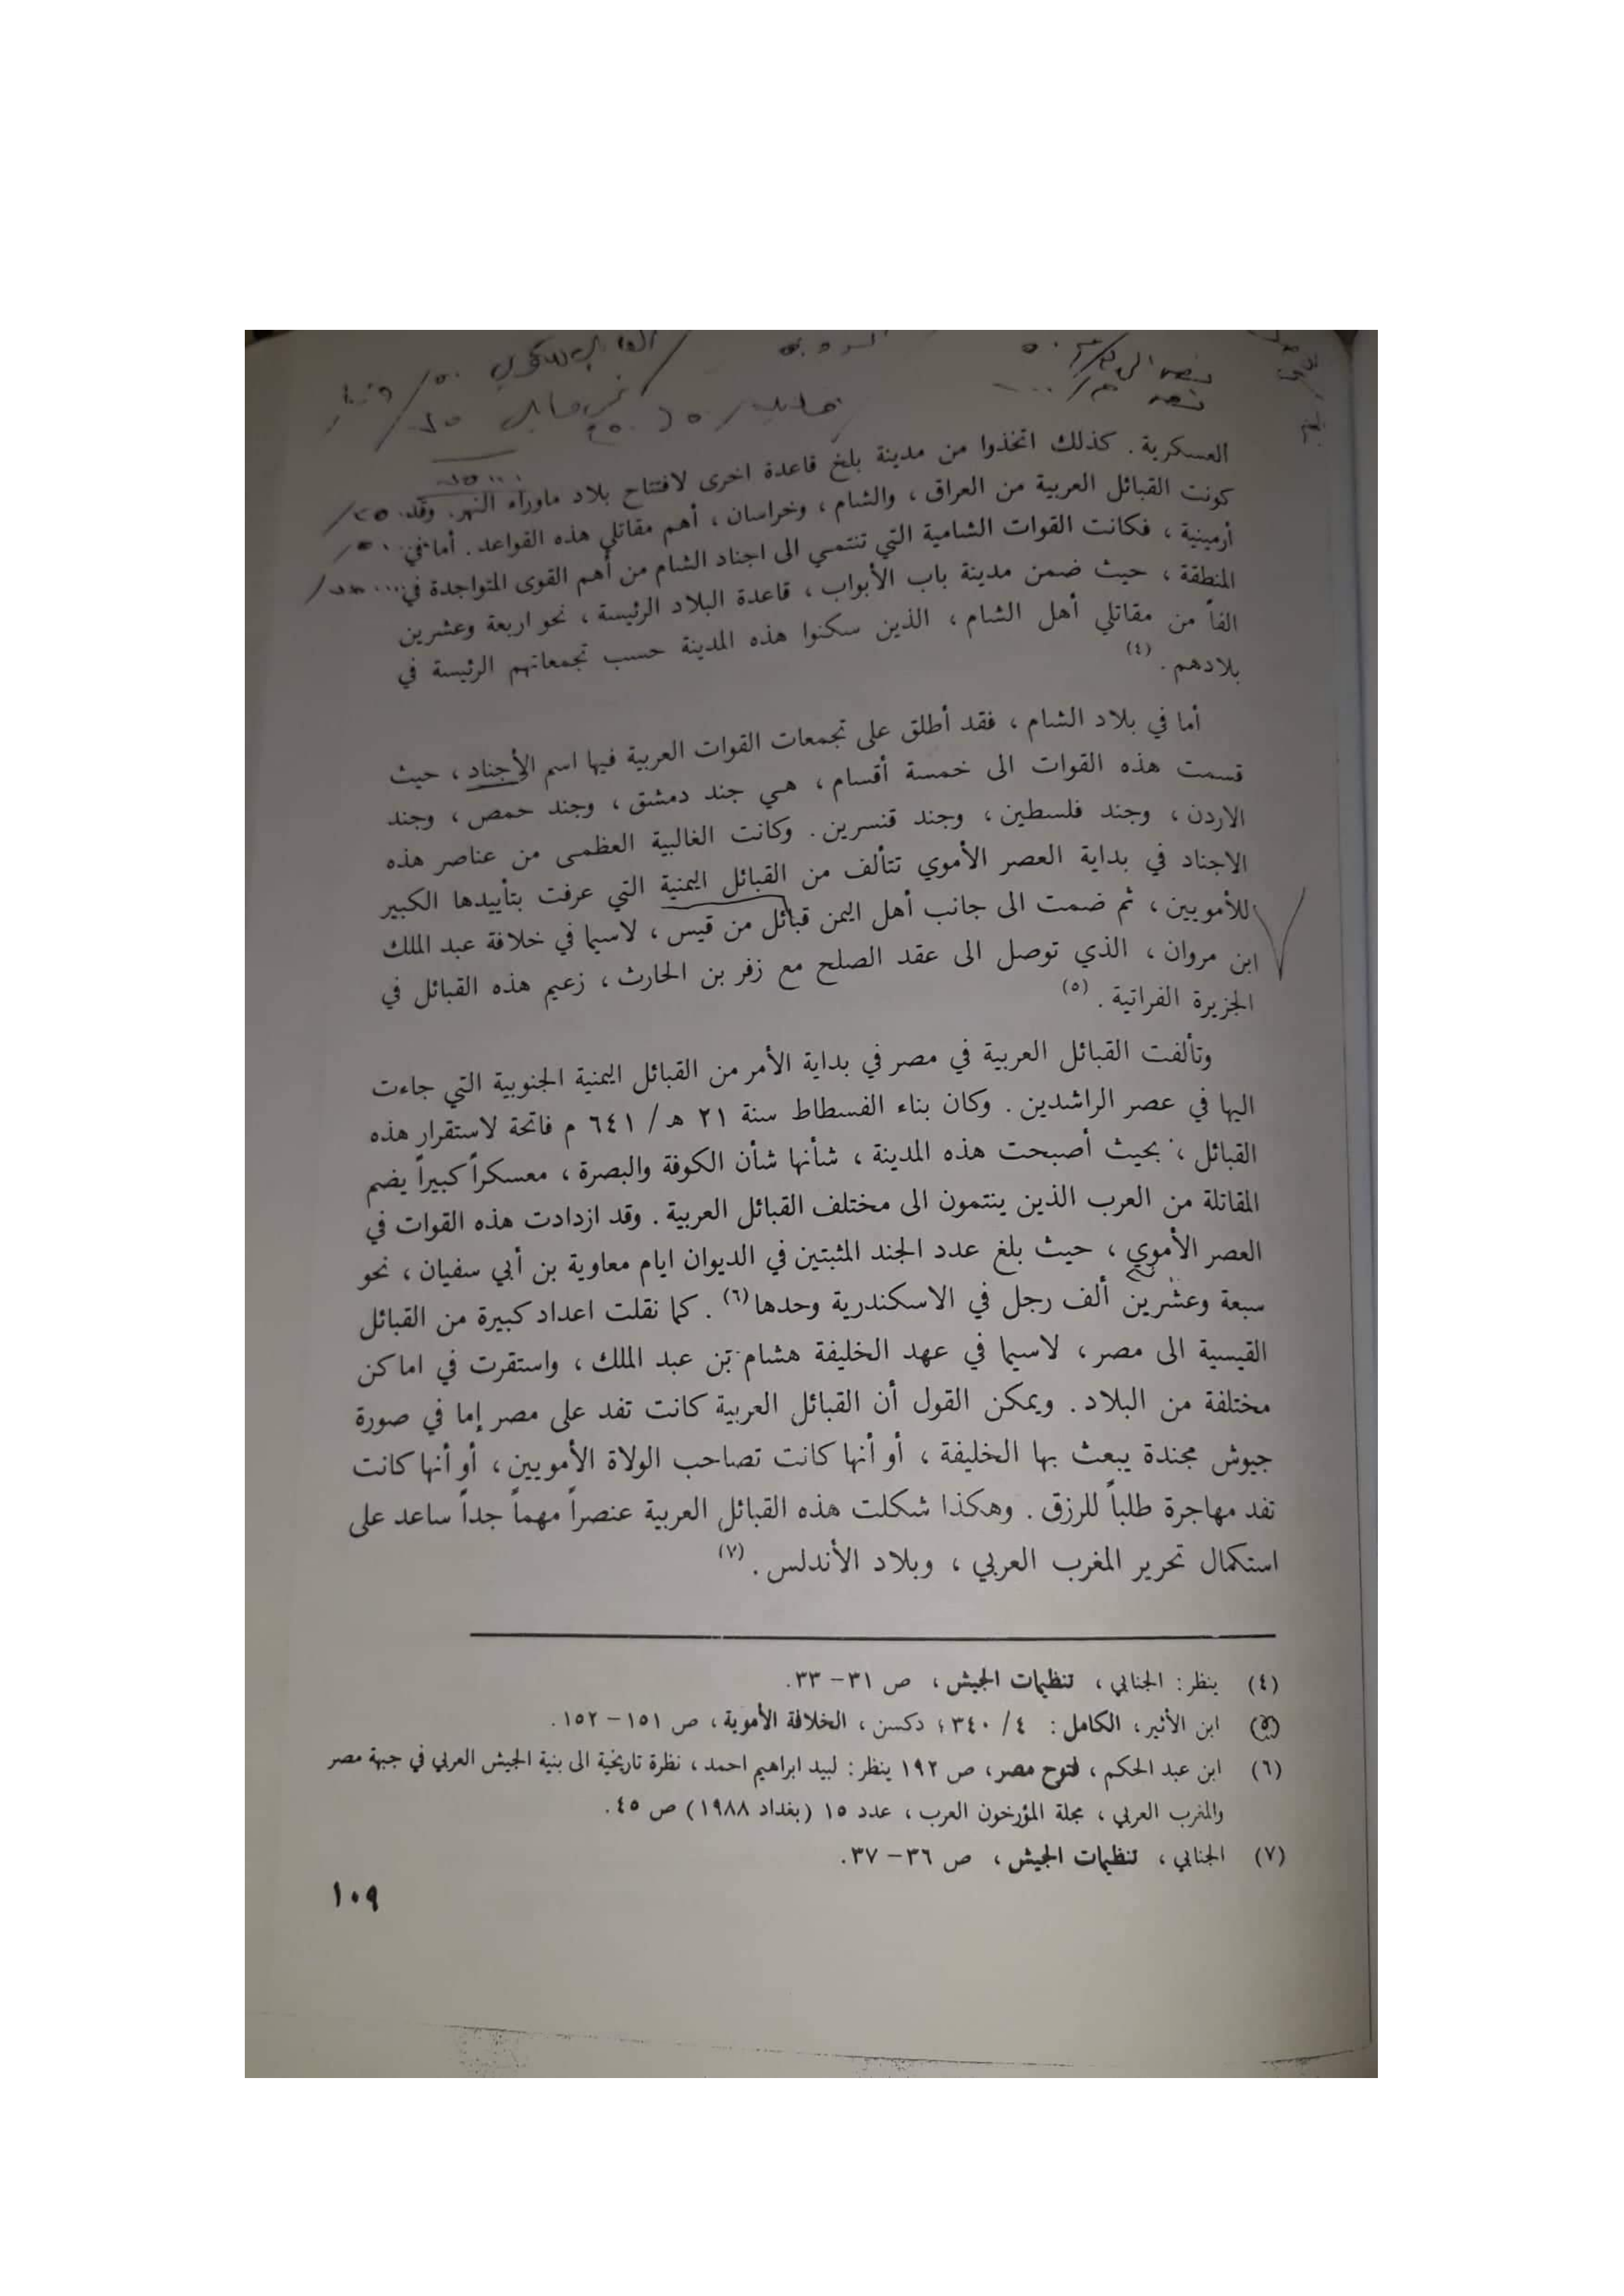 العسكرية . كذلك اتخذوا من مدينة بلخ قاعدة اخرى لافتتاح بلاد ماوراء النهر. وقد
كونت القبائل العربية من العراق ، والشام ، وخراسان ، أهم مقاتلي هذه القواعد . أما في
أرمينية ، فكانت القوات الشامية التي تنتمي الى اجناد الشام من أهم القوى المتواجدة في
المنطقة ، حيث ضمن مدينة باب الأبواب ، قاعدة البلاد الرئيسة ، نحو اربعة وعشرين
الفاً من مقاتلي أهل الشام ، الذين سكنوا هذه المدينة حسب تجمعاتهم الرئيسة في
بلادهم . (٤)
أما في بلاد الشام ، فقد أطلق على تجمعات القوات العربية فيها اسم الأجناد ، حيث
قسمت هذه القوات الى خمسة أقسام ، هي جند دمشق ، وجند حمص ، وجند
الاردن ، وجند فلسطين ، وجند قنسرين . وكانت الغالبية العظمى من عناصر هذه
الاجناد في بداية العصر الأموي تتألف من القبائل اليمنية التي عرفت بتأييدها الكبير
للأمويين ، ثم ضمت الى جانب أهل اليمن قبائل من قيس ، لاسيما في خلافة عبد الملك
ابن مروان ، الذي توصل الى عقد الصلح مع زفر بن الحارث ، زعيم هذه القبائل في
الجزيرة الفراتية . (٥)
وتألفت القبائل العربية في مصر في بداية الأمر من القبائل اليمنية الجنوبية التي جاءت
اليها في عصر الراشدين . وكان بناء الفسطاط سنة ٢١ هـ / ٦٤١ م فاتحة لاستقرار هذه
القبائل ، بحيث أصبحت هذه المدينة ، شأنها شأن الكوفة والبصرة ، معسكراً كبيراً يضم
المقاتلة من العرب الذين ينتمون الى مختلف القبائل العربية . وقد ازدادت هذه القوات في
العصر الأموي ، حيث بلغ عدد الجند المثبتين في الديوان ايام معاوية بن أبي سفيان ، نحو
سبعة وعشرين ألف رجل في الاسكندرية وحدها (٦) . كما نقلت اعداد كبيرة من القبائل
القيسية الى مصر ، لاسيما في عهد الخليفة هشام بن عبد الملك ، واستقرت في اماكن
مختلفة من البلاد . ويمكن القول أن القبائل العربية كانت تفد على مصر إما في صورة
جيوش مجندة يبعث بها الخليفة ، أو أنها كانت تصاحب الولاة الأمويين ، أو أنها كانت
تفد مهاجرة طلباً للرزق . وهكذا شكلت هذه القبائل العربية عنصراً مهماً جداً ساعد على
استكمال تحرير المغرب العربي ، وبلاد الأندلس . (٧)
(٤) ينظر : الجنابي ، تنظيمات الجيش ، ص ٣١ – ٣٣.
(٥) ابن الأثير ، الكامل : ٤ / ٣٤٠ ؛ دكسن ، الخلافة الأموية ، ص ١٥١ – ١٥٢ .
(٦) ابن عبد الحكم ، فتوح مصر ، ص ١٩٢ ينظر : لبيد ابراهيم احمد ، نظرة تاريخية الى بنية الجيش العربي في جبهة مصر
والمغرب العربي ، مجلة المؤرخون العرب ، عدد ١٥ (بغداد ١٩٨٨) ص ٤٥ .
(٧) الجنابي ، تنظيمات الجيش ، ص ٣٦ – ٣٧ .
١٠٩